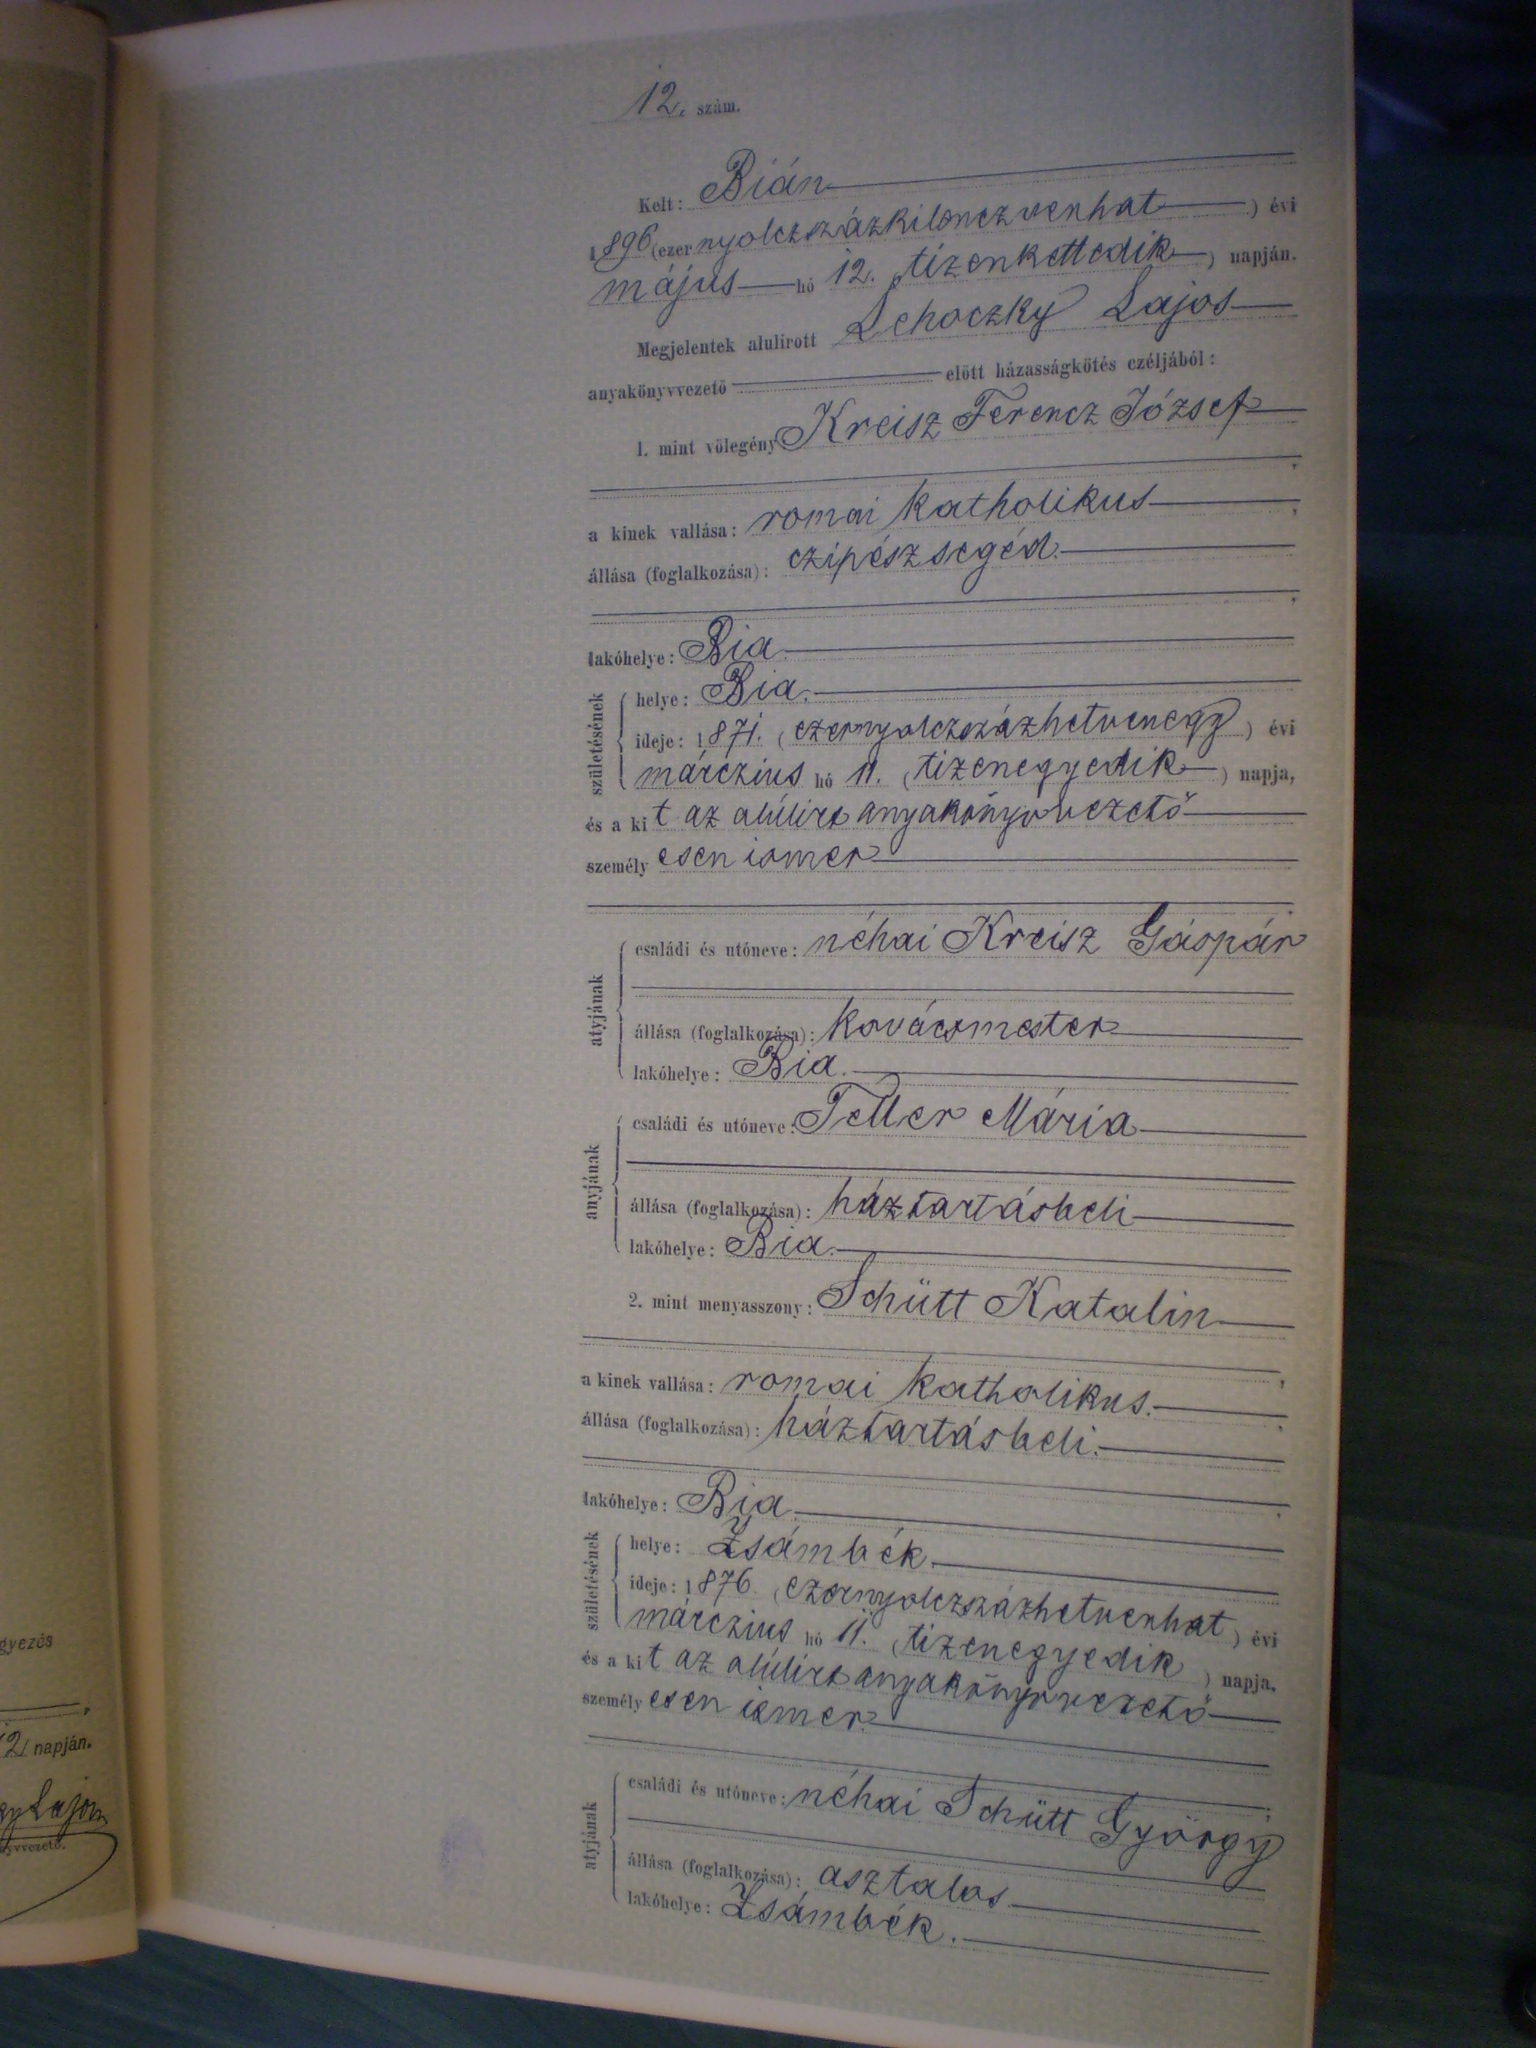 12. szám.
Kelt: Bián
1896 (ezer nyolczszázkilenczvenhat) évi
május hó 12. tizenkettedik) napján.
Megjelentek alulirott Lehoczky Lajos
anyakönyvvezető előtt házasságkötés czéljából:
1. mint vőlegény Kreisz Ferencz József
a kinek vallása: romai katholikus
állása (foglalkozása): czipész segéd.
lakóhelye: Bia
születésének
helye: Bia.
ideje: 1871. (ezernyolczszázhetvenegy) évi
márczius hó 11. (tizenegyedik) napja,
és a kit az alúlirt anyakönyvvezető
személyesen ismer
atyjának
családi és utóneve: néhai Kreisz Gáspár
állása (foglalkozása): kovácsmester
lakóhelye: Bia.
anyjának
családi és utóneve: Teller Mária
állása (foglalkozása): háztartásbeli
lakóhelye: Bia.
2. mint menyasszony: Schütt Katalin
a kinek vallása: romai katholikus.
állása (foglalkozása): háztartásbeli.
lakóhelye: Bia.
születésének
helye: Zsámbék.
ideje: 1876. (ezernyolczszázhetvenhat) évi
márczius hó 11. (tizenegyedik) napja,
és a kit az alúlirt anyakönyvvezető
személyesen ismer.
atyjának
családi és utóneve: néhai Schütt György
állása (foglalkozása): asztalos
lakóhelye: Zsámbék.
gyezés
12 napján.
Lajos